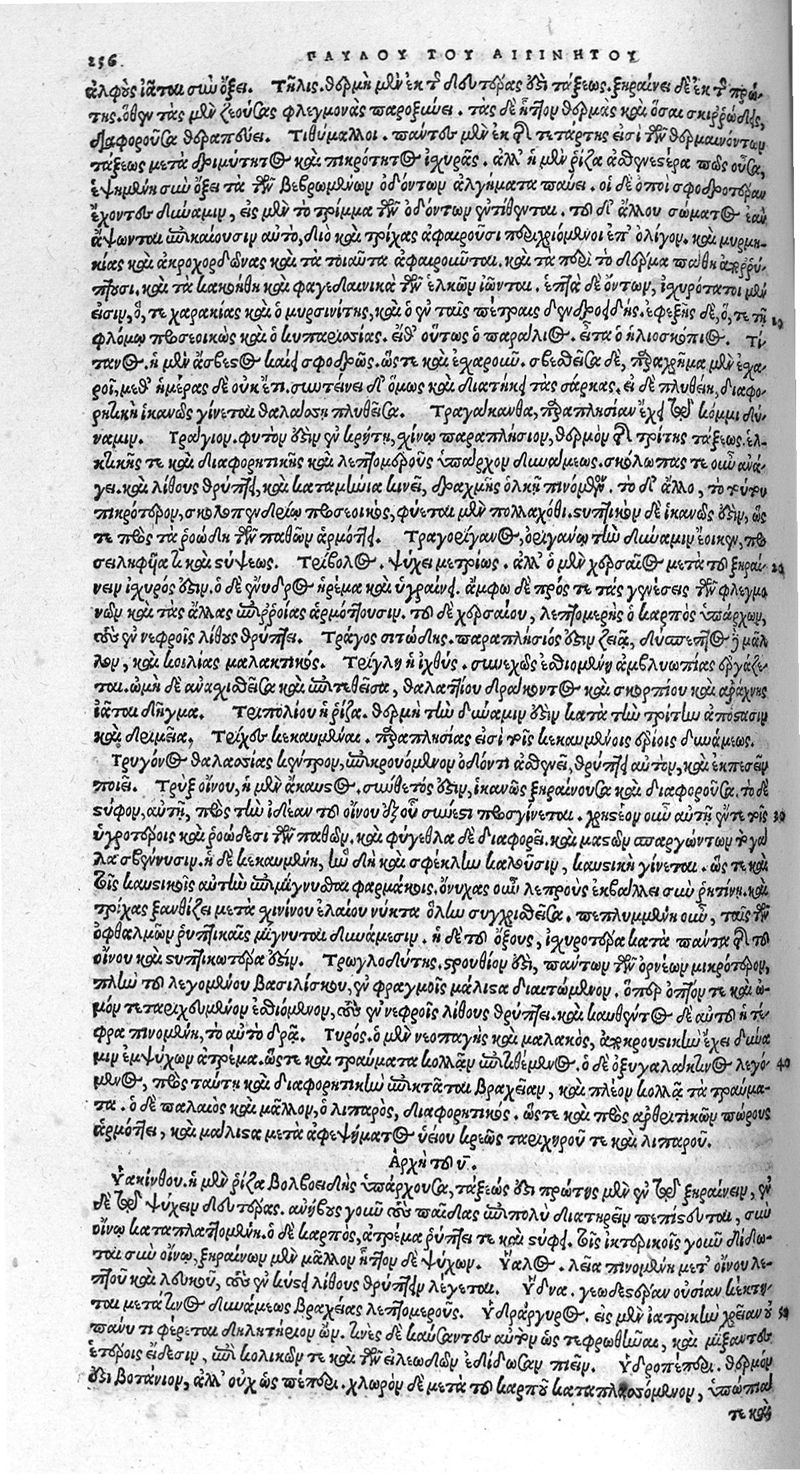 256. ΠΑΥΛΟΥ ΤΟΥ ΑΙΓΙΝΗΤΟΥ
ἀλφοὺς ἰᾶται σὺν ὄξει. Τῆλις. θερμὴ μὲν ἐκ τ δευτέρας ἐστὶ τάξεως. ξηραίνει δὲ ἐκ τ πρώ-
της. ὅθεν τὰς μὲν ζεούσας φλεγμονὰς παροξύνει. τὰς δὲ ἧττον θερμὰς καὶ ὅσαι σκιῤῥώδεις,
διαφοροῦσα θεραπεύει. Τιθύμαλλοι. πάντες μὲν ἐκ τῆς τετάρτης εἰσὶ τῶν θερμαινόντων
τάξεως μετὰ δριμύτητος καὶ πικρότητος ἰσχυρᾶς. ἀλλ' ἡ μὲν ῥίζα ἀσθενεστέρα πως οὖσα,
ἑψημένη σὺν ὄξει τὰ τῶν βεβρωμένων ὀδόντων ἀλγήματα παύει. οἱ δὲ ὀποὶ σφοδροτέραν
ἔχοντες δύναμιν, εἰς μὲν τὸ τρίμμα τῶν ὀδόντων ἐντίθενται. τοῦ δ' ἄλλου σώματος ἐὰν
ἅψωνται ἐπικαίουσιν αὐτό, διὸ καὶ τρίχας ἀφαιροῦσι περιχριόμενοι ἐπ' ὀλίγον. καὶ μυρμη-
κίας καὶ ἀκροχορδόνας καὶ τὰ τοιαῦτα ἀφαιροῦνται. καὶ τὰ περὶ τὸ δέρμα πάθη ἀποῤῥύ-
πτουσι, καὶ τὰ κακοήθη καὶ φαγεδαινικὰ τῶν ἑλκῶν ἰῶνται. ἑπτὰ δὲ ὄντων, ἰσχυρότατοι μέν
εἰσιν, ὅ, τε χαρακίας καὶ ὁ μυρσινίτης, καὶ ὁ ἐν ταῖς πέτραις δενδροειδής. ἐφεξῆς δὲ, ὅ, τε τῇ 10
φλόμῳ προσεοικὼς καὶ ὁ κυπαρισσίας. εἶθ' οὕτως ὁ παράλιος. εἶτα ὁ ἡλιοσκόπιος. Τί-
τανος. ἡ μὲν ἄσβεστος καίει σφοδρῶς. ὥστε καὶ ἐσχαροῦν. σβεσθεῖσα δὲ, παραχρῆμα μὲν ἐσχα-
ροῖ, μεθ' ἡμέρας δὲ οὐκ ἔτι. συντείνει δ' ὅμως καὶ διατήκει τὰς σάρκας. εἰ δὲ πλυθείη, διαφο-
ρητικὴ ἱκανῶς γίνεται θαλάσσῃ πλυθεῖσα. Τραγάκανθα, παραπλησίαν ἔχει τῷ κόμμι δύ-
ναμιν. Τράγιον. φυτὸν ἐστὶν ἐν κρήτῃ, σχίνῳ παραπλήσιον, θερμὸν τῆς τρίτης τάξεως. ἑλ-
κτικῆς τε καὶ διαφορητικῆς καὶ λεπτομεροῦς ὑπάρχον δυνάμεως. σκόλωπας τε οὖν ἀνά-
γει. καὶ λίθους θρύπτει, καὶ καταμήνια κινεῖ, δραχμῆς ὁλκῇ πινόμενον. τὸ δ' ἄλλο, τὸ τούτου
πικρότερον, σκολοπενδρίῳ προσεοικὸς, φύεται μὲν πολλαχόθι. στυπτικὸν δὲ ἱκανῶς ἐστὶν, ὥς
τε πρὸς τὰ ῥοώδη τῶν παθῶν ἁρμόττει. Τραγορίγανος, ὀριγάνῳ τὴν δύναμιν ἔοικεν, προ
σειληφυῖά τι καὶ στύψεως. Τρίβολος. ψύχει μετρίως. ἀλλ' ὁ μὲν χερσαῖος μετὰ τοῦ ξηραί- 20
νειν ἰσχυρός ἐστιν. ὁ δὲ ἔνυδρος ἠρέμα καὶ ὑγραίνει. ἄμφω δὲ πρός τε τὰς γενέσεις τῶν φλεγμο
νῶν καὶ τὰς ἄλλας ἐπιῤῥοίας ἁρμόττουσιν. τοῦ δὲ χερσαίου, λεπτομερὴς ὁ καρπὸς ὑπάρχων,
τοὺς ἐν νεφροῖς λίθους θρύπτει. Τράγος σιτώδης. παραπλήσιός ἐστιν ζειᾷ, δύσπεπτος δὲ μᾶλ
λον, καὶ κοιλίας μαλακτικός. Τρίγλη ἡ ἰχθύς. συνεχῶς ἐσθιομένη ἀμβλυωπίας ἐργάζε-
ται. ὠμὴ δὲ ἀνασχισθεῖσα καὶ ἐπιτεθεῖσα, θαλαττίου δράκοντος καὶ σκορπίου καὶ ἀράχνης
ἰᾶται δῆγμα. Τριπολίου ἡ ῥίζα. θερμὴ τὴν δύναμιν ἐστὶν κατὰ τὴν τρίτην ἀπόστασιν
καὶ δριμεῖα. Τρίχες κεκαυμέναι. παραπλησίας εἰσὶ τοῖς κεκαυμένοις ἐρίοις δυνάμεως.
Τρυγόνος θαλασσίας κέντρον, ἐπικρουόμενον ὀδόντι ἀσθενεῖ, θρύπτει αὐτόν, καὶ ἐκπεσεῖν
ποιεῖ. Τρὺξ οἴνου, ἡ μὲν ἄκαυστος. σύνθετός ἐστιν, ἱκανῶς ξηραίνουσα καὶ διαφοροῦσα. τὸ δὲ
στῦφον, αὐτῇ, πρὸς τὴν ἰδέαν τοῦ οἴνου ἐξ οὗ συνέστη προσγίνεται. χρηστέον οὖν αὐτῇ ἔν τε τοῖς 30
ὑγροτέροις καὶ ῥοώδεσι τῶν παθῶν. καὶ φύγεθλα δὲ διαφορεῖ. καὶ μασῶν σπαργώντων τὸ γά
λα σβέννυσιν. ἡ δὲ κεκαυμένη, ἣν δὴ καὶ σφέκλην καλοῦσιν, καυστικὴ γίνεται. ὥς τε καὶ
τοῖς καυστικοῖς αὐτὴν ἐπιμίγνυσθαι φαρμάκοις. ὄνυχας οὖν λεπροὺς ἐκβάλλει σὺν ῥητίνῃ. καὶ
τρίχας ξανθίζει μετὰ σχινίνου ἐλαίου νύκτα ὅλην συγχρισθεῖσα. πεπλυμμένη οὖν, ταῖς τῶν
ὀφθαλμῶν ῥυπτικαῖς μίγνυται δυνάμεσιν. ἡ δὲ τοῦ ὄξους, ἰσχυροτέρα κατὰ πάντα τῆς τοῦ
οἴνου καὶ στυπτικωτέρα ἐστίν. Τρωγλοδύτης. στρουθίον ἐστὶ, πάντων τῶν ὀρνέων μικρότερον,
πλὴν τοῦ λεγομένου βασιλίσκου, ἐν φραγμοῖς μάλιστα διαιτώμενον. ὅπερ ὀπτόν τε καὶ ὠ-
μόν τεταριχευμένον ἐσθιόμενον, τοὺς ἐν νεφροῖς λίθους θρύπτει. καὶ καυθέντος δὲ αὐτοῦ ἡ τέ-
φρα πινομένη, τὸ αὐτὸ δρᾷ. Τυρός. ὁ μὲν νεοπαγὴς καὶ μαλακός, ἀποκρουστικὴν ἔχει δύνα
μιν ἐμψύχων ἀτρέμα. ὥστε καὶ τραύματα κολλᾶν ἐπιτιθέμενος. ὁ δὲ ὀξυγαλάκτινος λεγό- 40
μενος, πρὸς ταύτῃ καὶ διαφορητικὴν ἐπικτᾶται βραχεῖαν, καὶ πλέον κολλᾷ τὰ τραύμα-
τα. ὁ δὲ παλαιὸς καὶ μᾶλλον, ὁ λιπαρὸς, διαφορητικός. ὥστε καὶ πρὸς ἀρθριτικῶν πώρους
ἁρμόττει, καὶ μάλιστα μετὰ ἀφεψήματος ὑείου κρέως ταριχηροῦ τε καὶ λιπαροῦ.
Ἀρχὴ τοῦ υ̅.
Ὑακίνθου. ἡ μὲν ῥίζα βολβοειδὴς ὑπάρχουσα, τάξεώς ἐστι πρώτης μὲν ἐν τῷ ξηραίνειν, ἐν
δὲ τῷ ψύχειν δευτέρας. ἀνήβους γοῦν τοὺς παῖδας ἐπιπολὺ διατηρεῖν πεπίστευται, σὺν
οἴνῳ καταπλαττομένη. ὁ δὲ καρπὸς, ἀτρέμα ῥύπτει τε καὶ στύφει. τοῖς ἰκτερικοῖς γοῦν δίδο-
ται σὺν οἴνῳ, ξηραίνων μὲν μᾶλλον ἧττον δὲ ψύχων. Ὕαλος. λεία πινομένη μετ' οἴνου λε-
πτοῦ καὶ λευκοῦ, τοὺς ἐν κύστει λίθους θρύπτειν λέγεται. Ὕδνα. γεωδεστέραν οὐσίαν κέκτη-
ται μετά τινος δυνάμεως βραχείας λεπτομεροῦς. Ὑδράργυρος. εἰς μὲν ἰατρικὴν χρείαν οὐ 50
πάνυ τι φέρεται δηλητήριον ὄν. τινὲς δὲ καύσαντες αὐτὴν ὡς τεφρωθῆναι, καὶ μίξαντες
ἑτέροις εἴδεσιν, ἐπὶ κολικῶν τε καὶ τῶν εἰλεωδῶν ἐδίδωσαν πιεῖν. Ὑδροπέπερι. θερμόν
ἐστι βοτάνιον, ἀλλ' οὐχ ὡς πέπερι. χλωρὸν δὲ μετὰ τοῦ καρποῦ καταπλασσόμενον, ὑπώπιά
τε καὶ